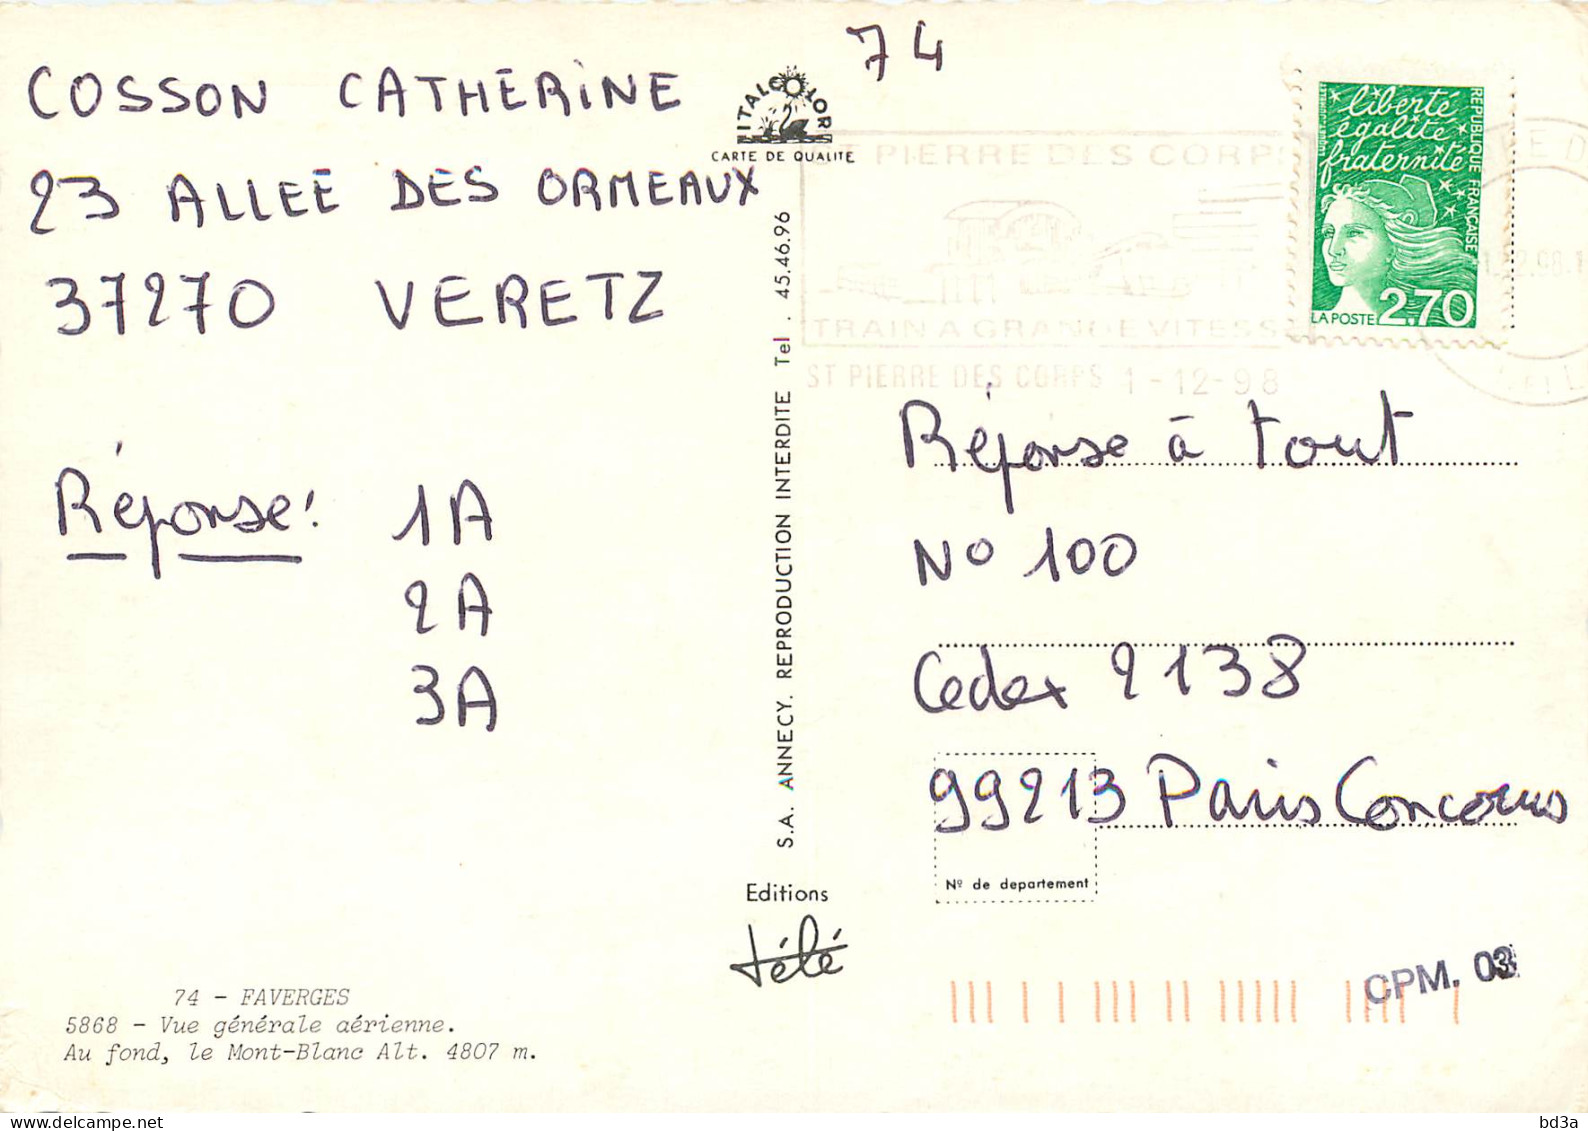 74
COSSON CATHERINE
23 ALLEE DES ORMEAUX
37270 VERETZ
Réponse! 1A
2A
3A
74 - FAVERGES
5868 - Vue générale aérienne.
Au fond, le Mont-Blanc Alt. 4807 m.
ITALCOLOR
CARTE DE QUALITE
S.A. ANNECY. REPRODUCTION INTERDITE Tel . 45.46.96
Editions
télé
ST PIERRE DES CORPS
TRAIN A GRANDE VITESSE
ST PIERRE DES CORPS 1-12-98
liberté
égalité
fraternité
REPUBLIQUE FRANÇAISE
LA POSTE 2,70
Réponse à tout
No 100
Cedex 2138
99213 Paris Concours
Nº de departement
CPM. 03
bd3a